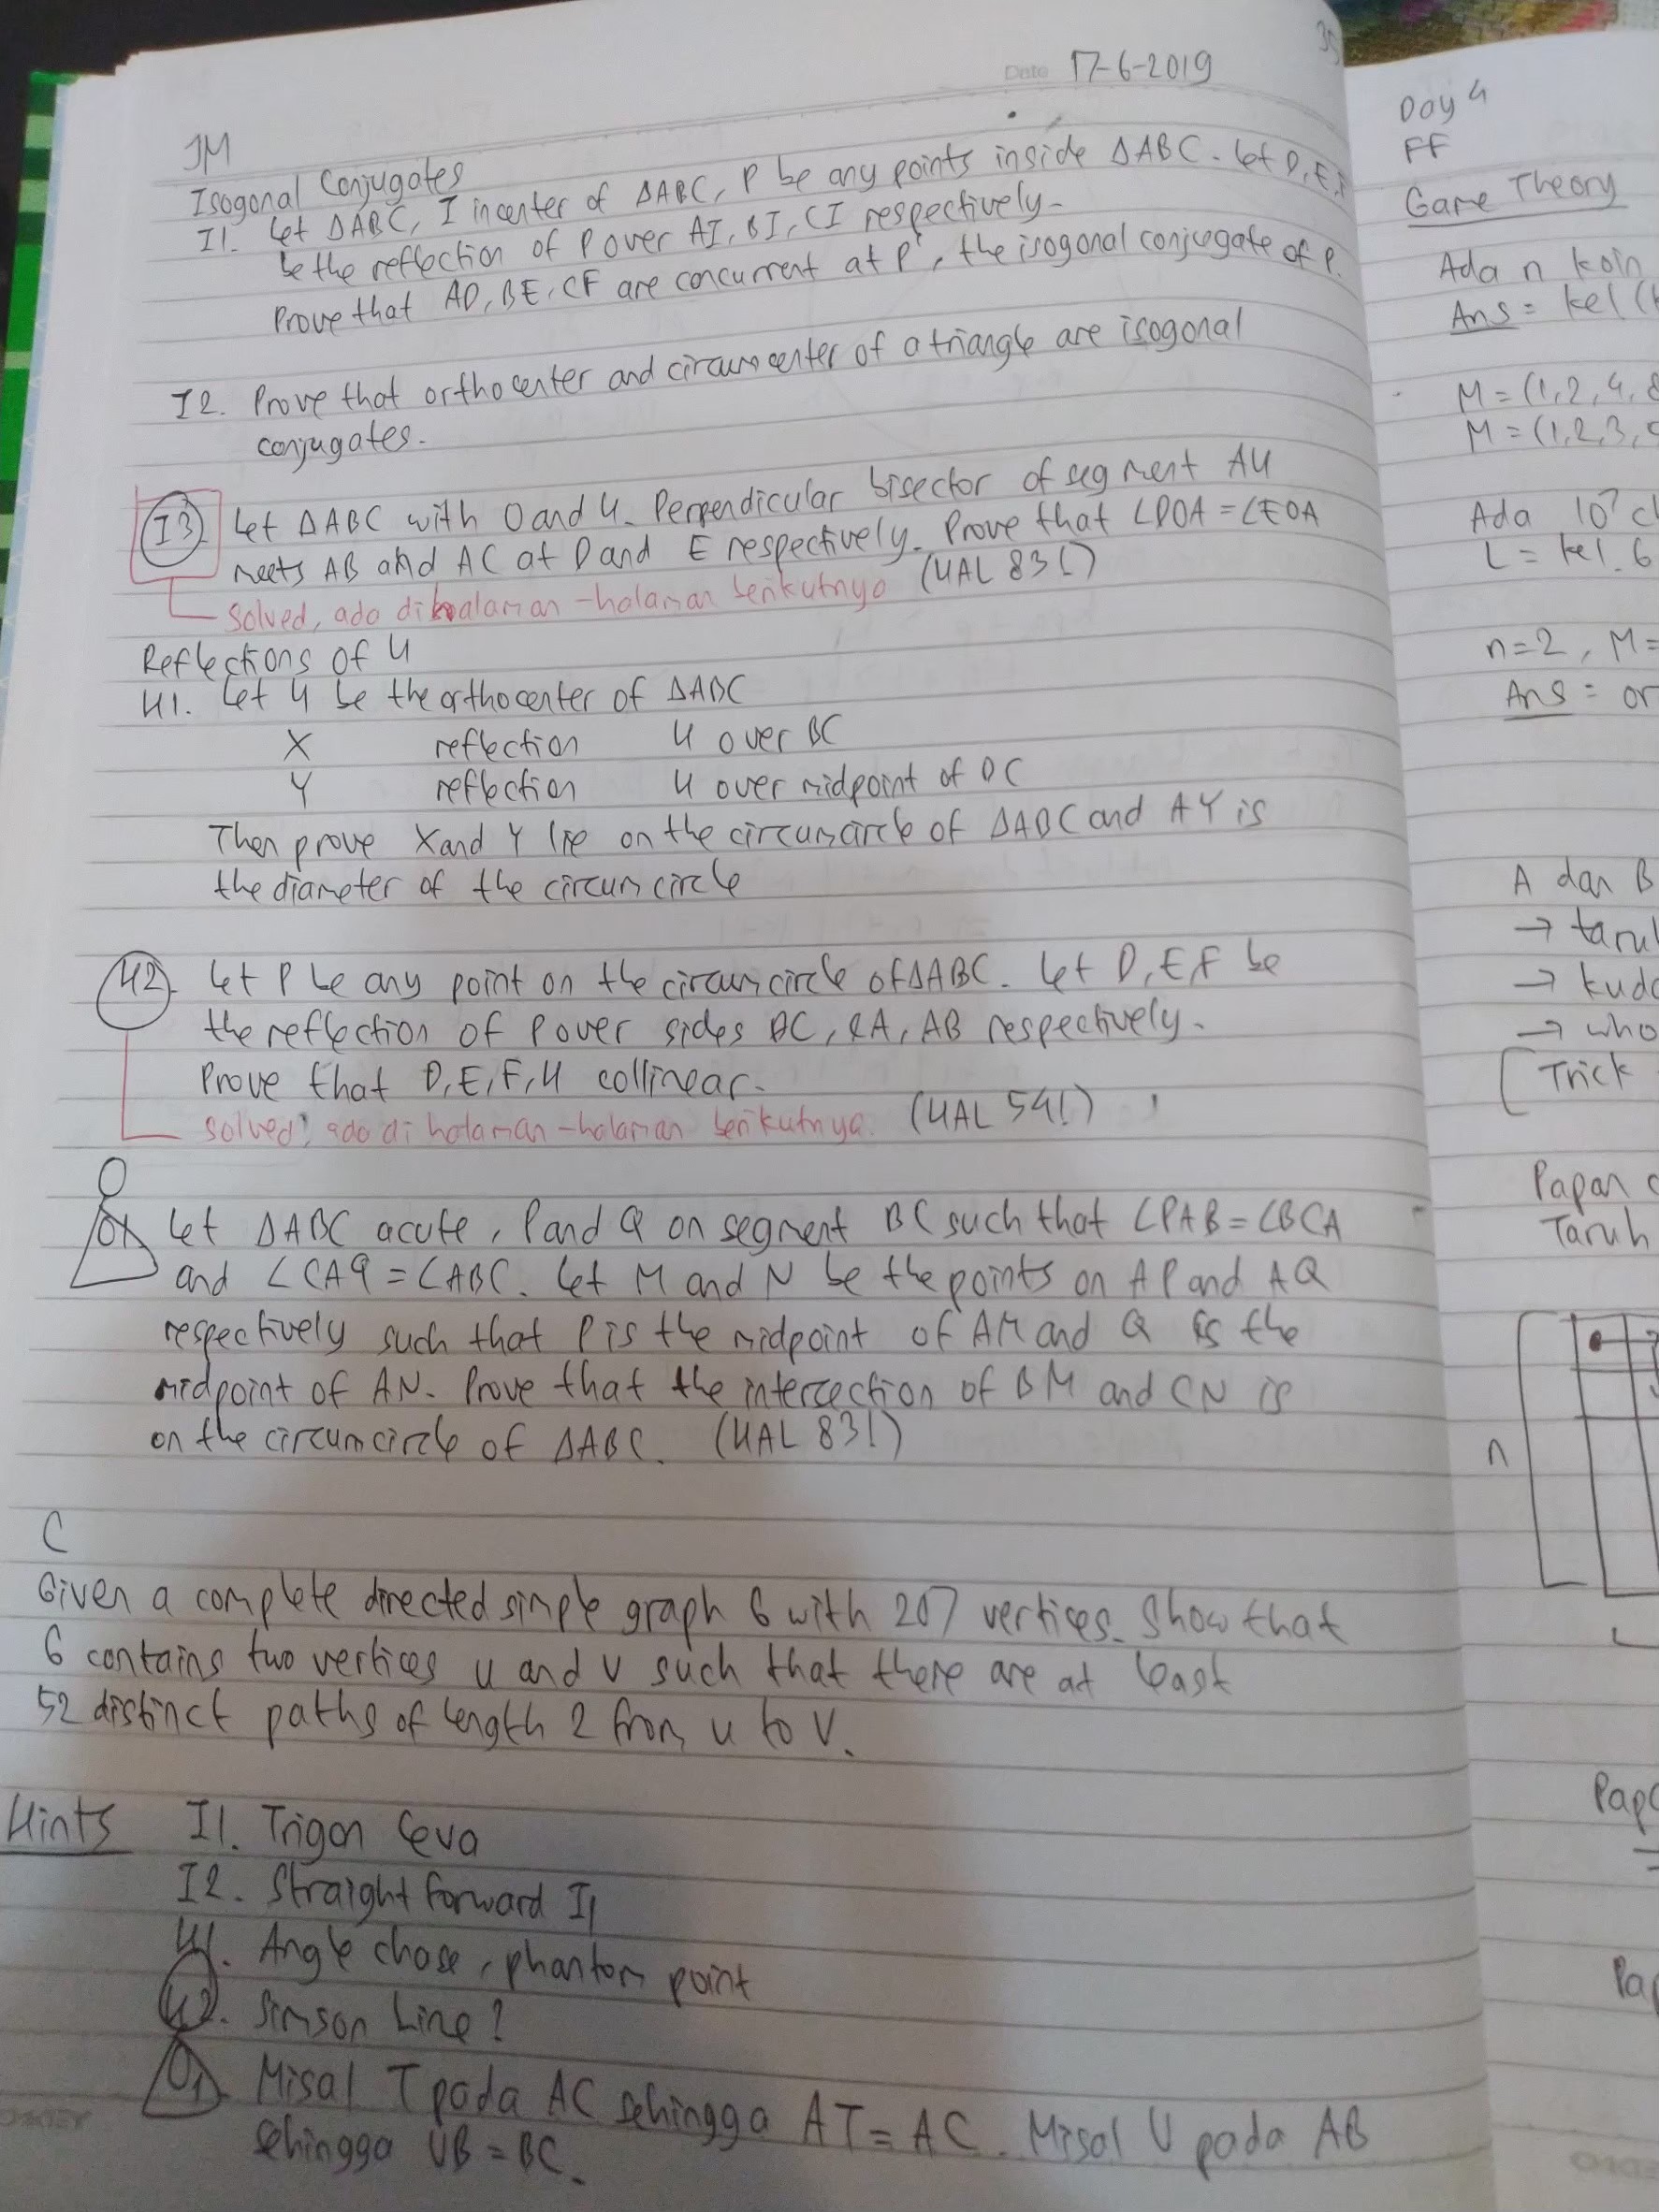 35
Date 17-6-2019
JM
Isogonal Conjugates
I1. Let ΔABC, I incenter of ΔABC, P be any points inside ΔABC. Let D, E, F
be the reflection of P over AI, BI, CI respectively.
Prove that AD, BE, CF are concurrent at P', the isogonal conjugate of P.
I2. Prove that orthocenter and circumcenter of a triangle are isogonal
conjugates.
I3. Let ΔABC with O and H. Perpendicular bisector of segment AH
meets AB and AC at D and E respectively. Prove that ∠DOA = ∠EOA
(HAL 83!)
solved, ada di halaman-halaman berikutnya
Reflections of H
H1. Let H be the orthocenter of ΔABC
X reflection H over BC
Y reflection H over midpoint of BC
Then prove X and Y lie on the circumcircle of ΔABC and AY is
the diameter of the circumcircle
H2. Let P be any point on the circumcircle of ΔABC. Let D, E, F be
the reflection of P over sides BC, CA, AB respectively.
Prove that D, E, F, H collinear.
solved, ada di halaman-halaman berikutnya. (HAL 54!)
O1 Let ΔABC acute, P and Q on segment BC such that ∠PAB = ∠BCA
and ∠CAQ = ∠ABC. Let M and N be the points on AP and AQ
respectively such that P is the midpoint of AM and Q is the
midpoint of AN. Prove that the intersection of BM and CN is
on the circumcircle of ΔABC. (HAL 83!)
C
Given a complete directed simple graph G with 207 vertices. Show that
G contains two vertices u and v such that there are at least
52 distinct paths of length 2 from u to v.
Hints I1. Trigon Ceva
I2. Straight forward I1
H1. Angle chase, phantom point
H2. Simson Line?
O1 Misal T pada AC sehingga AT = AC. Misal U pada AB
sehingga UB = BC.
Day 4
FF
Game Theory
Ada n koin
Ans = kel
M = (1, 2, 4, 8
M = (1, 2, 3,
Ada 10⁷
L = kel. 6
n=2, M=
Ans = or
A dan B
→ taru
→ kuda
→ who
Trick
Papan
Taruh
n